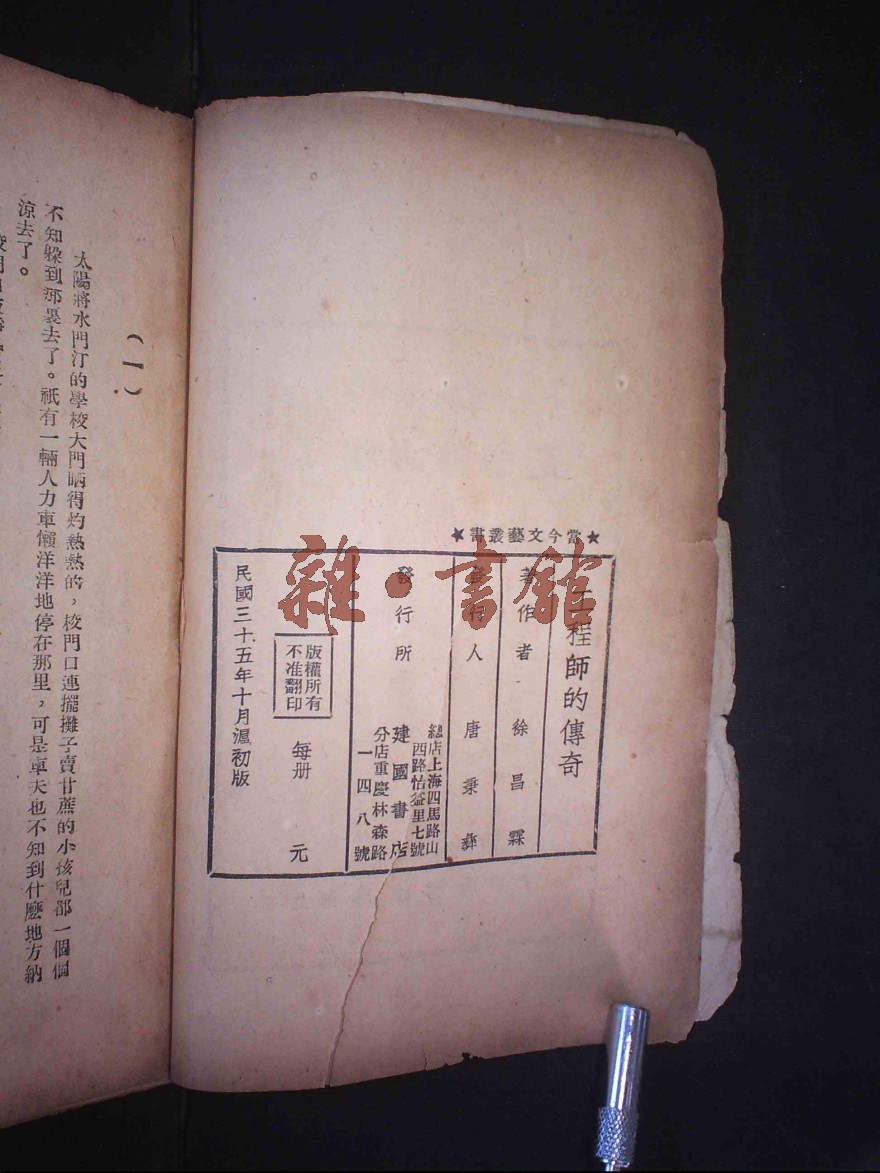 ★當今文藝叢書★
工程師的傳奇
著作者 徐昌霖
發行人 唐秉彝
發行所 建國書店
總店上海四馬路山
西路怡益里七號
分店重慶林森路
一四八號
版權所有
不准翻印
每册 元
民國三十五年十月滬初版
雜·書館
(一)
太陽將水門汀的學校大門晒得灼熱熱的，校門口連擺攤子賣甘蔗的小孩兒都一個個
不知躱到那裏去了。祇有一輛人力車懶洋洋地停在那里，可是車夫也不知到什麽地方納
涼去了。